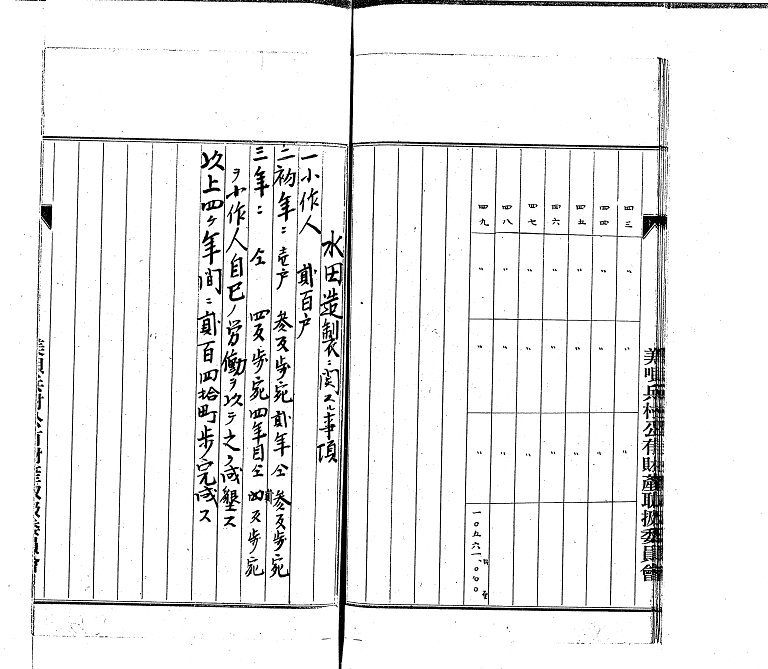 美唄兵村公有財産取扱委員會
四三 〃 〃 〃
四四 〃 〃 〃
四五 〃 〃 〃
四六 〃 〃 〃
四七 〃 〃 〃
四八 〃 〃 〃
四九 〃 〃 〃 一〇五六一、〇〇〇
水田造製ニ関スル事項
一小作人 貳百戸
二初年ニ壱戸 参反歩宛貳年仝参反歩宛
三年ニ仝 四反歩宛四年目仝貳反歩宛
ヲ小作人自己ノ労働ヲ以テ之ヲ成墾ス
以上四ヶ年間ニ貳百四拾町歩ノ完成ス